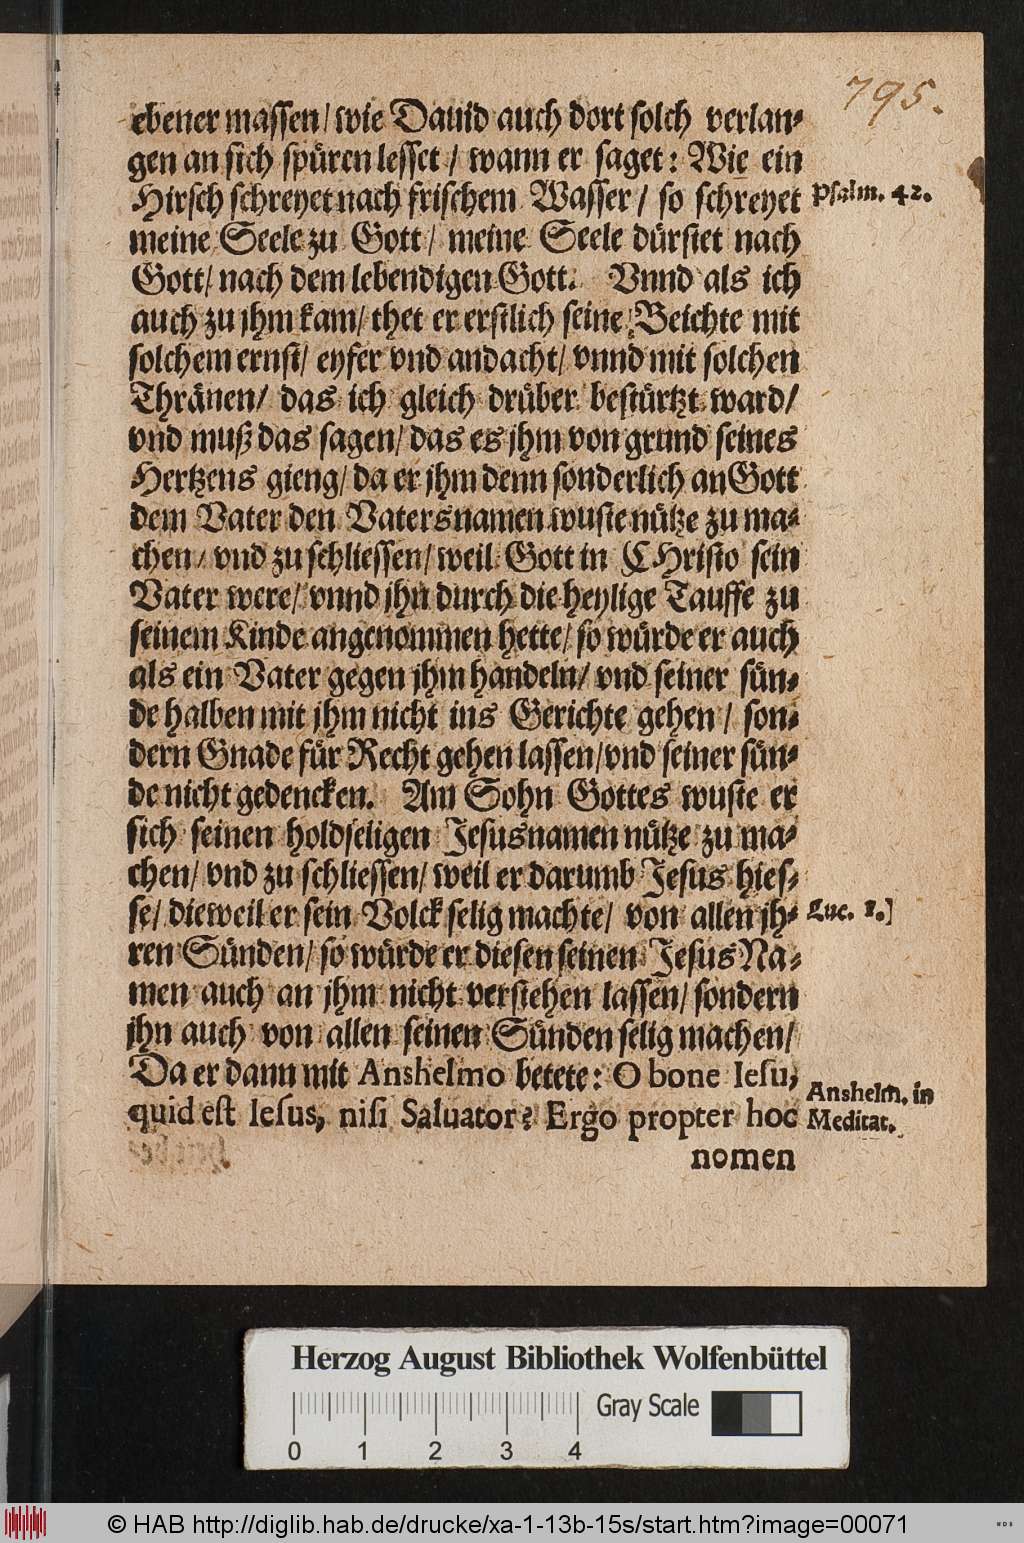 795.
ebener massen/ wie Dauid auch dort solch verlan-
gen an sich spüren lesset/ wann er saget: Wie ein
Hirsch schreyet nach frischem Wasser/ so schreyet
Psalm. 42.
meine Seele zu Gott/ meine Seele dürstet nach
Gott/ nach dem lebendigen Gott. Vnnd als ich
auch zu jhm kam/ thet er erstlich seine Beichte mit
solchem ernst/ eyfer vnd andacht/ vnnd mit solchen
Thränen/ das ich gleich drüber bestürtzt ward/
vnd muß das sagen/ das es jhm von grund seines
Hertzens gieng/ da er jhm denn sonderlich an Gott
dem Vater den Vatersnamen wuste nütze zu ma-
chen/ vnd zu schliessen/ weil Gott in CHristo sein
Vater were/ vnnd jhn durch die heylige Tauffe zu
seinem Kinde angenommen hette/ so würde er auch
als ein Vater gegen jhm handeln/ vnd seiner sün-
de halben mit jhm nicht ins Gerichte gehen/ son-
dern Gnade für Recht gehen lassen/ vnd seiner sün-
de nicht gedencken. Am Sohn Gottes wuste er
sich seinen holdseligen Jesusnamen nütze zu ma-
chen/ vnd zu schliessen/ weil er darumb Jesus hies-
se/ dieweil er sein Volck selig machte/ von allen jh-
Luc. 1.]
ren Sünden/ so würde er diesen seinen Jesus Na-
men auch an jhm nicht verstehen lassen/ sondern
jhn auch von allen seinen Sünden selig machen/
Da er dann mit Anshelmo betete: O bone Iesu,
quid est Iesus, nisi Saluator? Ergo propter hoc
Anshelm. in
Meditat.
nomen
Herzog August Bibliothek Wolfenbüttel
Gray Scale
0 1 2 3 4
© HAB http://diglib.hab.de/drucke/xa-1-13b-15s/start.htm?image=00071
WDB